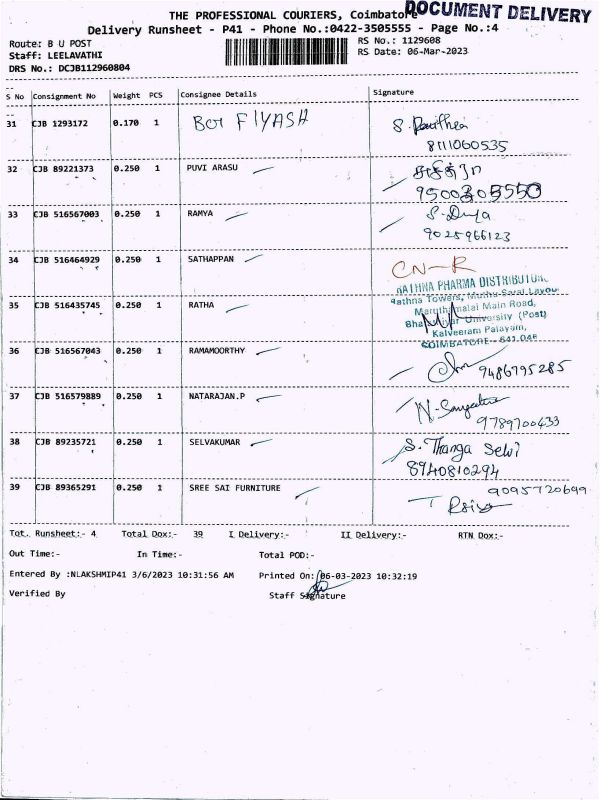 THE PROFESSIONAL COURIERS, Coimbatore
DOCUMENT DELIVERY
Delivery Runsheet - P41 - Phone No.:0422-3505555 - Page No.:4
Route: B U POST
RS No.: 1129608
Staff: LEELAVATHI
RS Date: 06-Mar-2023
DRS No.: DCJB112960804
S No Consignment No Weight PCS Consignee Details Signature
31 CJB 1293172 0.170 1
S. Pavithra
8111060535
32 CJB 89221373 0.250 1 PUVI ARASU
33 CJB 516567003 0.250 1 RAMYA
9025966123
34 CJB 516464929 0.250 1 SATHAPPAN
CN-R
RATHNA PHARMA DISTRIBUTOR
Rathna Towers,
Maruthamalai Main Road,
35 CJB 516435745 0.250 1 RATHA
Bharathiar University (Post)
Kalveeram Palayam,
COIMBATORE - 641 046
36 CJB 516567043 0.250 1 RAMAMOORTHY
9486795285
37 CJB 516579889 0.250 1 NATARAJAN.P
9789700433
38 CJB 89235721 0.250 1 SELVAKUMAR S. Thanga Selvi
8940810294
39 CJB 89365291 0.250 1 SREE SAI FURNITURE 9095720699
Tot. Runsheet:- 4 Total Dox:- 39 I Delivery:- II Delivery:- RTN Dox:-
Out Time:- In Time:- Total POD:-
Entered By :NLAKSHMIP41 3/6/2023 10:31:56 AM Printed On: 06-03-2023 10:32:19
Verified By Staff Signature